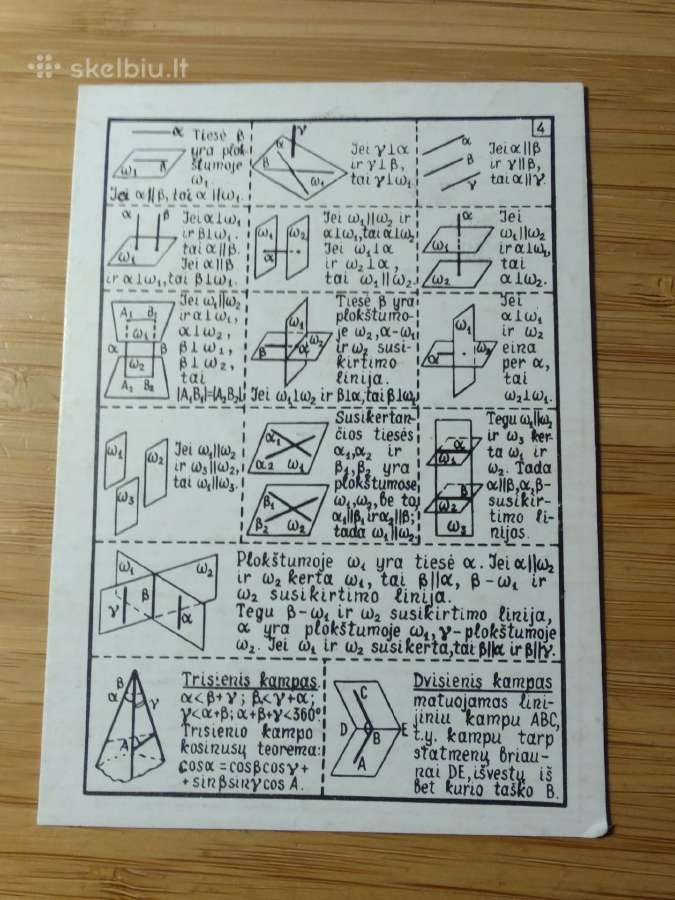 skelbiu.lt
4
α Tiesė β
yra plok-
štumoje
ω₁.
Jei α∥β, tai α∥ω₁.
ω₁ β
γ
α
β
ω₁
Jei γ⊥α
ir γ⊥β,
tai γ⊥ω₁.
α
β
γ
Jei α∥β
ir γ∥β,
tai α∥γ.
α β
ω₁
Jei α⊥ω₁
ir β⊥ω₁,
tai α∥β.
Jei α∥β
ir α⊥ω₁, tai β⊥ω₁.
ω₁ ω₂
α
Jei ω₁∥ω₂ ir
α⊥ω₁, tai α⊥ω₂
Jei ω₁⊥α
ir ω₂⊥α,
tai ω₁∥ω₂.
α
ω₁
ω₂
Jei
ω₁∥ω₂
ir α⊥ω₁,
tai
α⊥ω₂.
A₁ B₁
ω₁
α β
ω₂
A₂ B₂
Jei ω₁∥ω₂
ir α⊥ω₁,
α⊥ω₂,
β⊥ω₁,
β⊥ω₂,
tai
|A₁B₁|=|A₂B₂|.
ω₁
β α ω₂
Tiesė β yra
plokštumo-
je ω₂, α-ω₁
ir ω₂ susi-
kirtimo
linija.
Jei ω₁⊥ω₂ ir β⊥α, tai β⊥ω₁
ω₁
α ω₂
Jei
α⊥ω₁
ir ω₂
eina
per α,
tai
ω₂⊥ω₁.
ω₁ ω₂
ω₃
Jei ω₁∥ω₂
ir ω₃∥ω₂,
tai ω₁∥ω₃.
α₁
α₂ ω₁
β₁
β₂ ω₂
Susikertan-
čios tiesės
α₁,α₂ ir
β₁,β₂ yra
plokštumose
ω₁,ω₂, be to
α₁∥β₁ ir α₂∥β₂;
tada ω₁∥ω₂.
α
ω₁
β
ω₂
ω₃
Tegu ω₁∥ω₂
ir ω₃ ker-
ta ω₁ ir
ω₂. Tada
α∥β, α,β-
susikir-
timo li-
nijos.
ω₁ ω₂
γ β α
Plokštumoje ω₁ yra tiesė α. Jei α∥ω₂
ir ω₂ kerta ω₁, tai β∥α, β - ω₁ ir
ω₂ susikirtimo linija.
Tegu β-ω₁ ir ω₂ susikirtimo linija,
α yra plokštumoje ω₁, γ-plokštumoje
ω₂. Jei ω₁ ir ω₂ susikerta, tai β∥α ir β∥γ.
β
α γ
A
Trisienis kampas
α<β+γ; β<γ+α;
γ<α+β; α+β+γ<360°
Trisienio kampo
kosinusų teorema:
cosα=cosβcosγ+
+sinβsinγcosA.
C
D B E
A
Dvisienis kampas
matuojamas lini-
jiniu kampu ABC,
t.y. kampu tarp
statmenų briau-
nai DE, išvestų iš
bet kurio taško B.